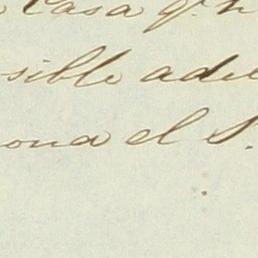 Casa q.
sible ade
ona el S.